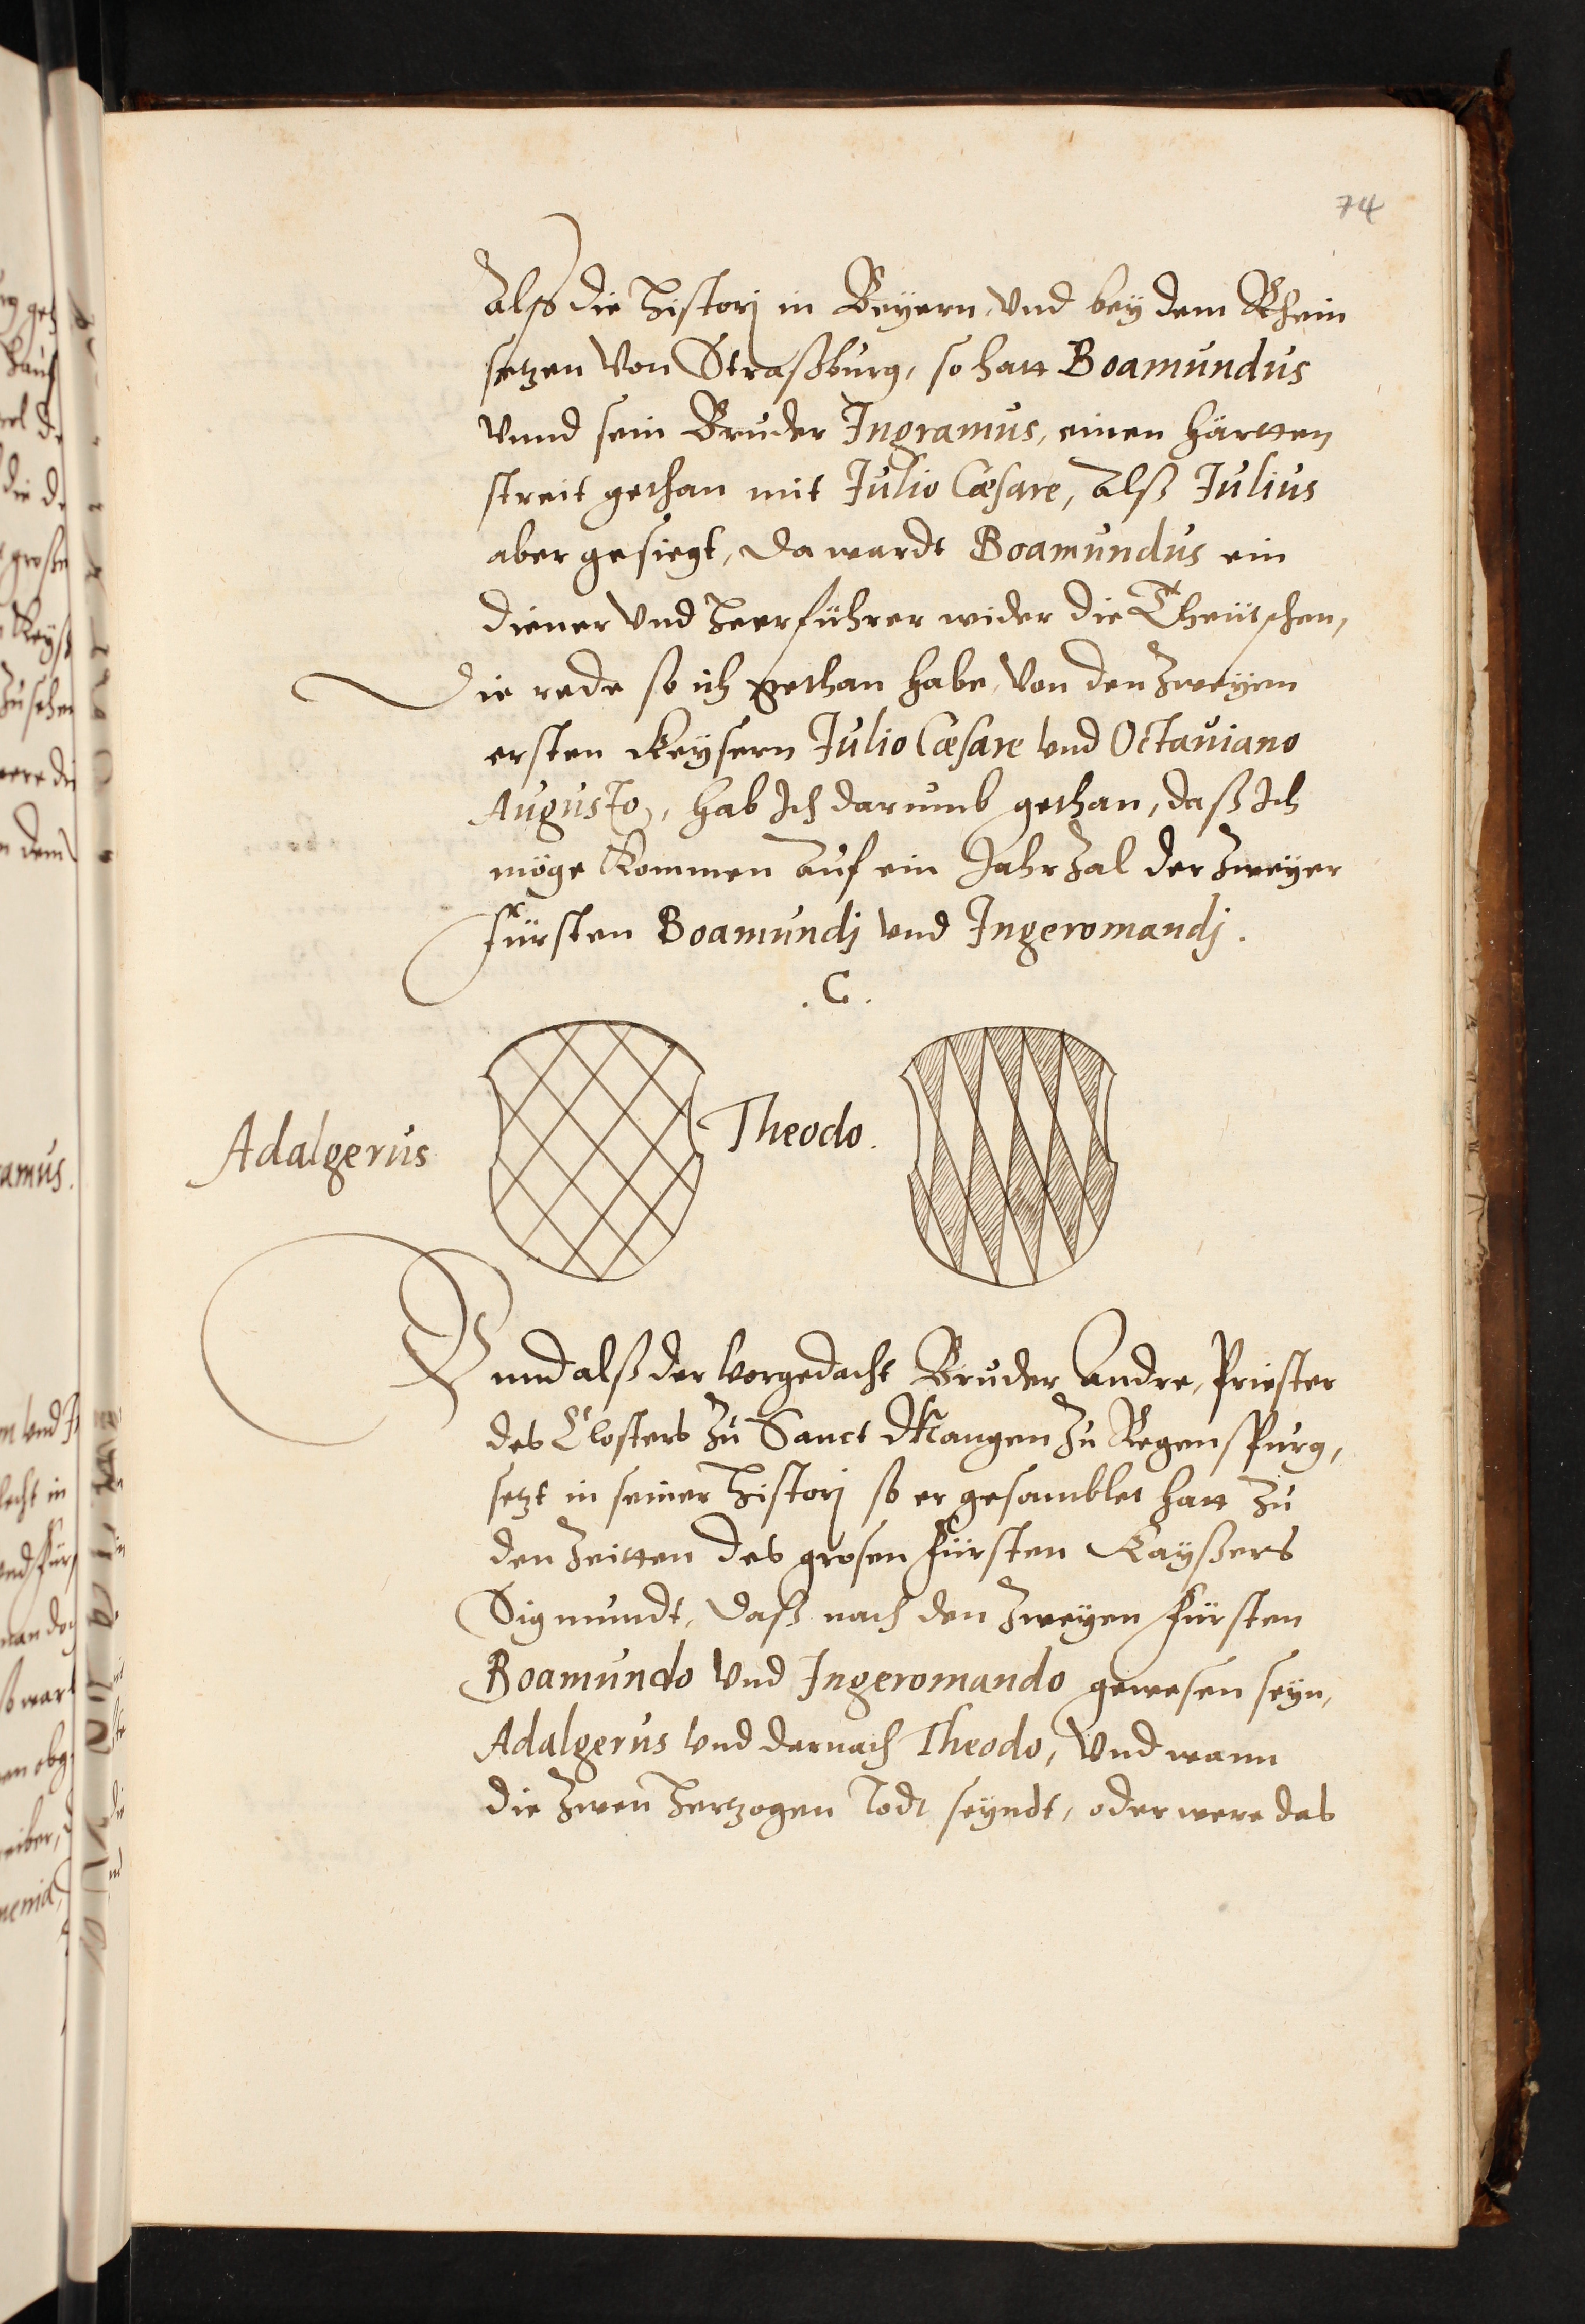 74
Alß die Historj in Beyern, Vnd bey dem Rhein
setzen Von Straßburg, so hatt Boamundus
Vnnd sein Bruder Ingramus, einen härtten
streit gethan mit Julio Cæsare, Alß Julius
aber gesiegt, da wardt Boamundus ein
diener Vnd Heerführer wider die Theütschen,
Die rede so ich gethan habe, Von den Zweyen
ersten Keysern Julio Cæsare Vnd Octauiano
Augusto, hab Ich darumb gethan, daß Ich
möge Kommen Auf ein JahrZal der Zweyer
Fürsten Boamundj Vnd Ingeromandj.
.C.
Adalgerus
Theodo.
Vnnd alß der Vorgedacht Bruder Andre, Priester
des Closters Zu Sanct Mangen Zu Regenspurg,
setzt in seiner Historj so er gesamblet hatt Zu
den Zeitten des grosen Fürsten Kayßers
Sigmundt, daß nach den Zweyen Fürsten
Boamundo Vnd Ingeromando gewesen seyn,
Adalgerus Vnd darnach Theodo, Vnd wann
die Zwen Hertzogen Todt seyndt, oder were das